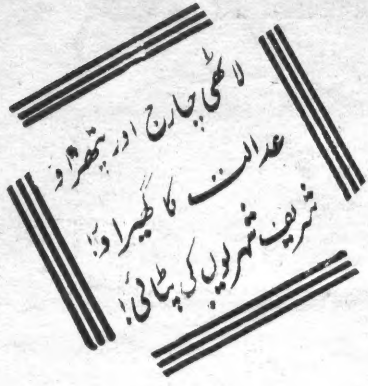 لاٹھی چارج اور پتھراؤ
عدالت کا گھیراؤ!
شریف شہریوں کی پٹائی!